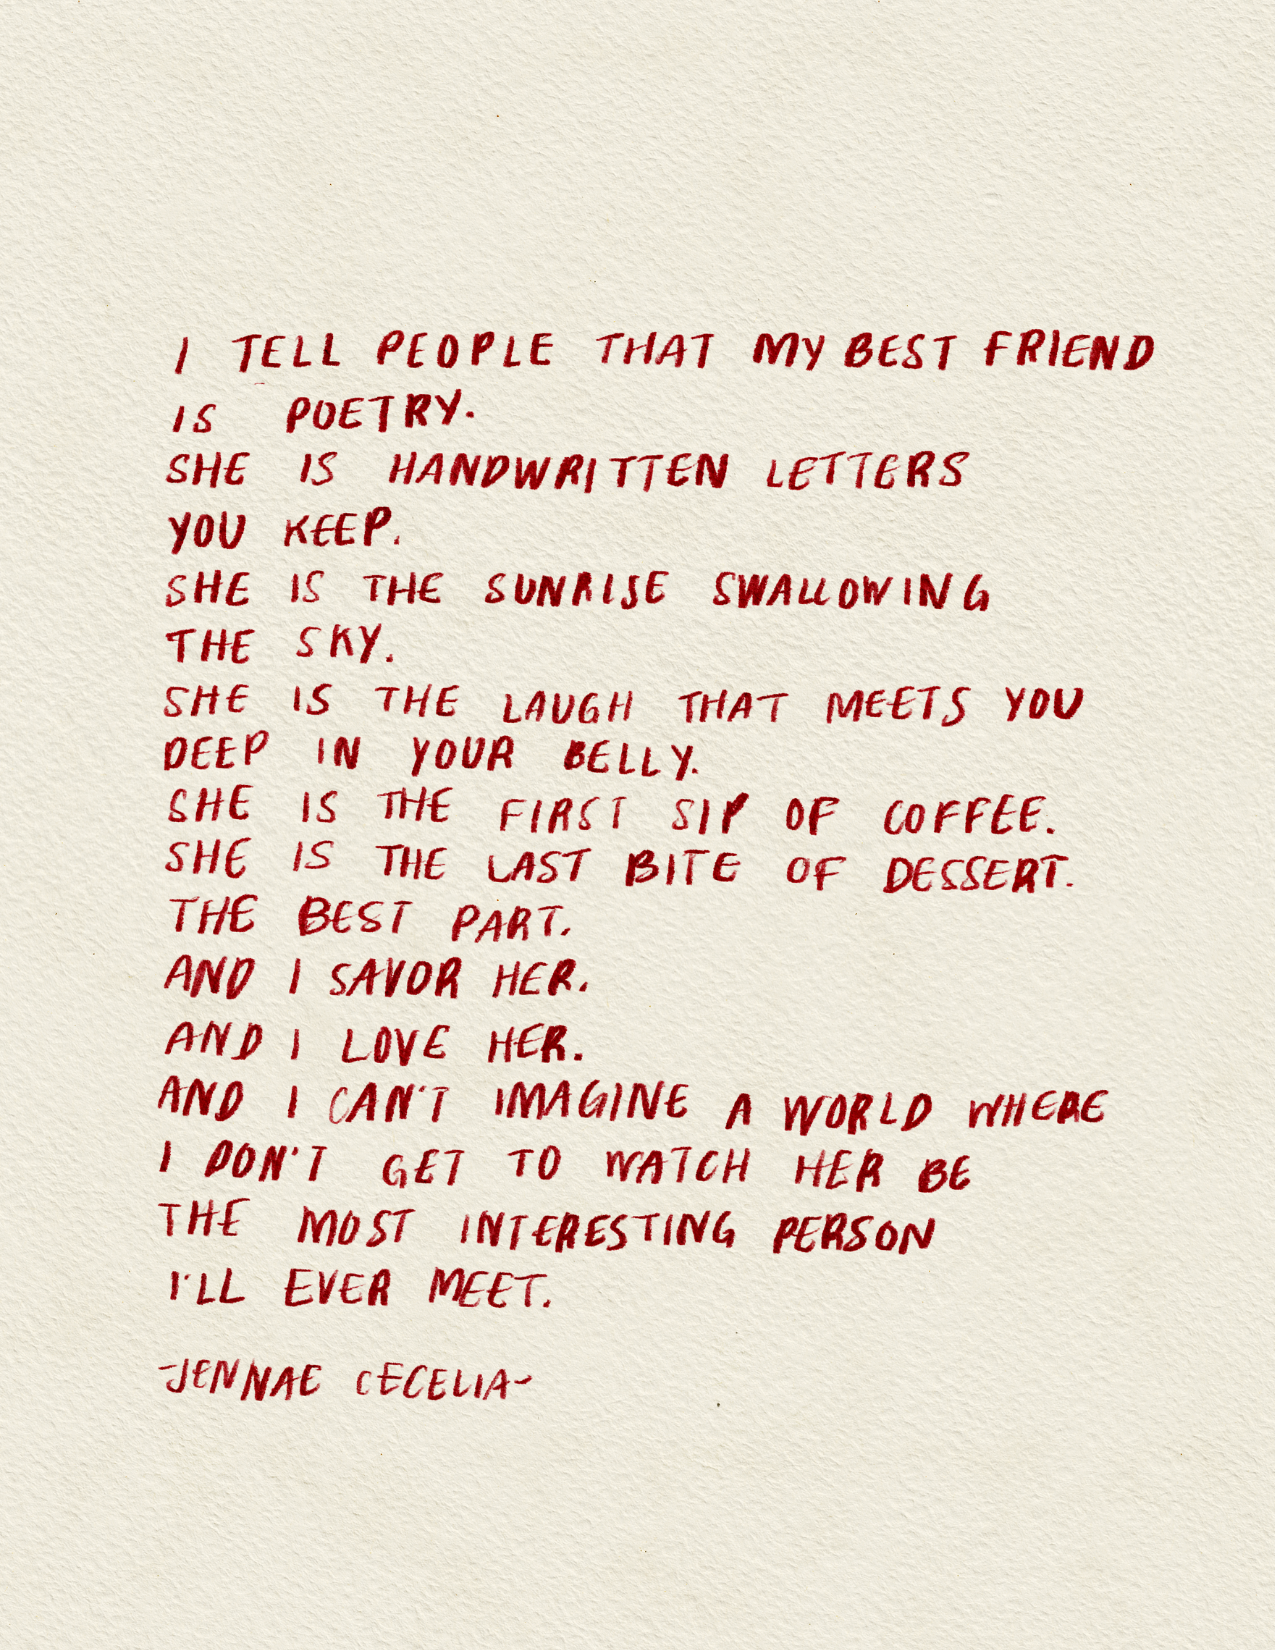 I TELL PEOPLE THAT MY BEST FRIEND
IS POETRY.
SHE IS HANDWRITTEN LETTERS
YOU KEEP.
SHE IS THE SUNRISE SWALLOWING
THE SKY.
SHE IS THE LAUGH THAT MEETS YOU
DEEP IN YOUR BELLY.
SHE IS THE FIRST SIP OF COFFEE.
SHE IS THE LAST BITE OF DESSERT.
THE BEST PART.
AND I SAVOR HER.
AND I LOVE HER.
AND I CAN'T IMAGINE A WORLD WHERE
I DON'T GET TO WATCH HER BE
THE MOST INTERESTING PERSON
I'LL EVER MEET.
-JENNAE CECELIA-